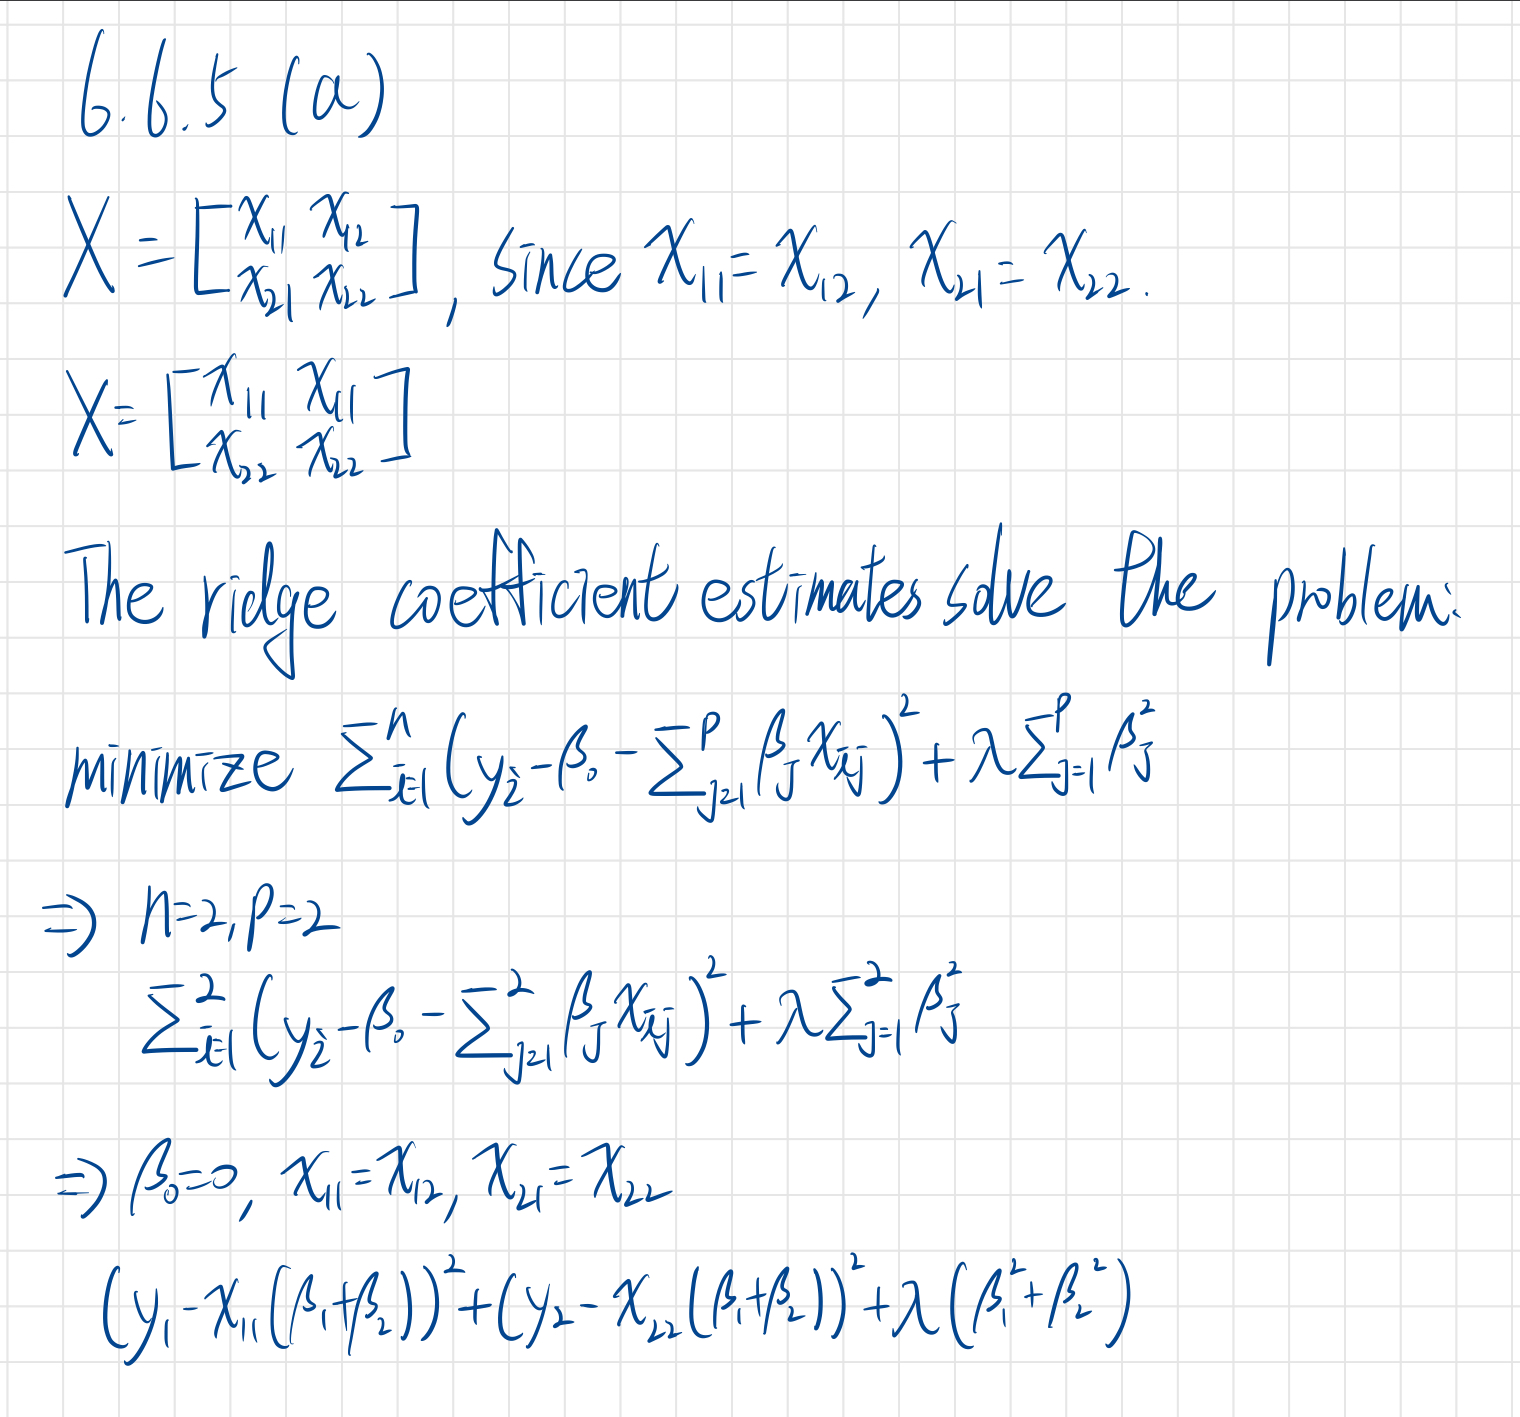 6.6.5 (a)
X = [x₁₁ x₁₂; x₂₁ x₂₂], since x₁₁ = x₁₂, x₂₁ = x₂₂.
X = [x₁₁ x₁₁; x₂₂ x₂₂]
The ridge coefficient estimates solve the problem:
minimize Σᵢ₌₁ⁿ (yᵢ - β₀ - Σⱼ₌₁ᵖ βⱼ xᵢⱼ)² + λ Σⱼ₌₁ᵖ βⱼ²
⇒ n=2, p=2
Σᵢ₌₁² (yᵢ - β₀ - Σⱼ₌₁² βⱼ xᵢⱼ)² + λ Σⱼ₌₁² βⱼ²
⇒ β₀=0, x₁₁ = x₁₂, x₂₁ = x₂₂
(y₁ - x₁₁(β₁+β₂))² + (y₂ - x₂₂(β₁+β₂))² + λ(β₁² + β₂²)